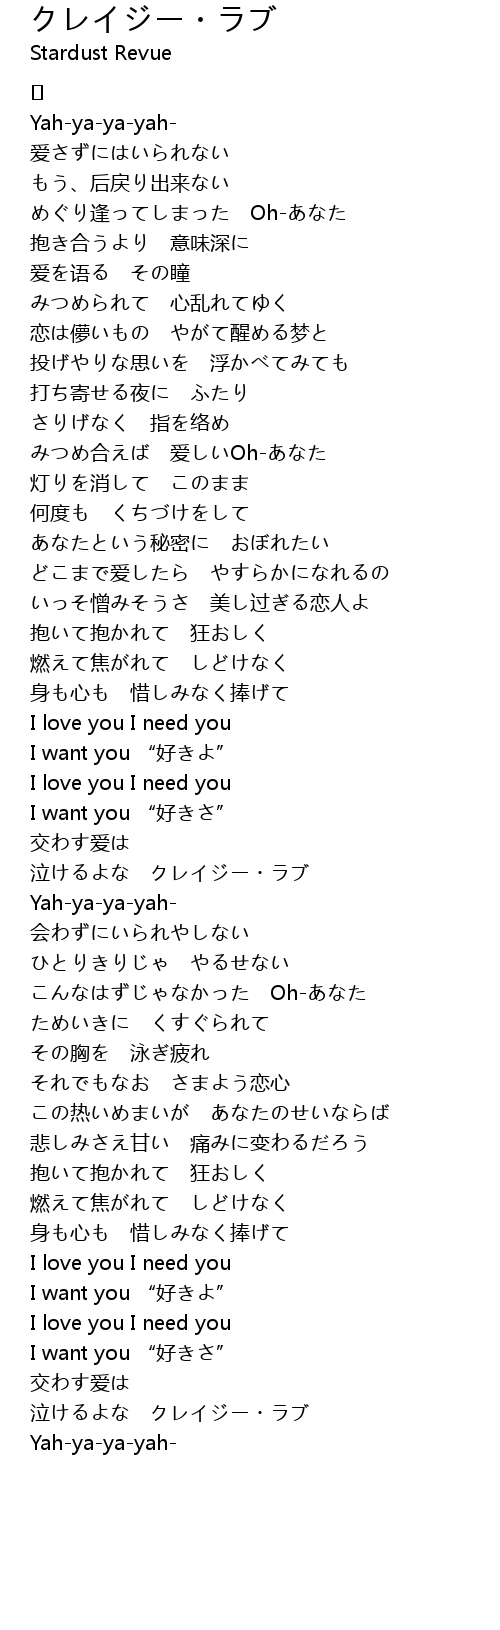 クレイジー・ラブ
Stardust Revue
Yah-ya-ya-yah-
爱さずにはいられない
もう、后戻り出来ない
めぐり逢ってしまった　Oh-あなた
抱き合うより　意味深に
爱を语る　その瞳
みつめられて　心乱れてゆく
恋は儚いもの　やがて醒める梦と
投げやりな思いを　浮かべてみても
打ち寄せる夜に　ふたり
さりげなく　指を络め
みつめ合えば　爱しいOh-あなた
灯りを消して　このまま
何度も　くちづけをして
あなたという秘密に　おぼれたい
どこまで爱したら　やすらかになれるの
いっそ憎みそうさ　美し过ぎる恋人よ
抱いて抱かれて　狂おしく
燃えて焦がれて　しどけなく
身も心も　惜しみなく捧げて
I love you I need you
I want you　“好きよ”
I love you I need you
I want you　“好きさ”
交わす爱は
泣けるよな　クレイジー・ラブ
Yah-ya-ya-yah-
会わずにいられやしない
ひとりきりじゃ　やるせない
こんなはずじゃなかった　Oh-あなた
ためいきに　くすぐられて
その胸を　泳ぎ疲れ
それでもなお　さまよう恋心
この热いめまいが　あなたのせいならば
悲しみさえ甘い　痛みに変わるだろう
抱いて抱かれて　狂おしく
燃えて焦がれて　しどけなく
身も心も　惜しみなく捧げて
I love you I need you
I want you　“好きよ”
I love you I need you
I want you　“好きさ”
交わす爱は
泣けるよな　クレイジー・ラブ
Yah-ya-ya-yah-